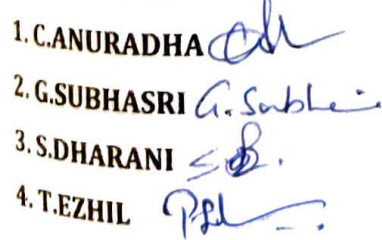 1. C.ANURADHA
2. G.SUBHASRI G. Subha
3. S.DHARANI
4. T.EZHIL